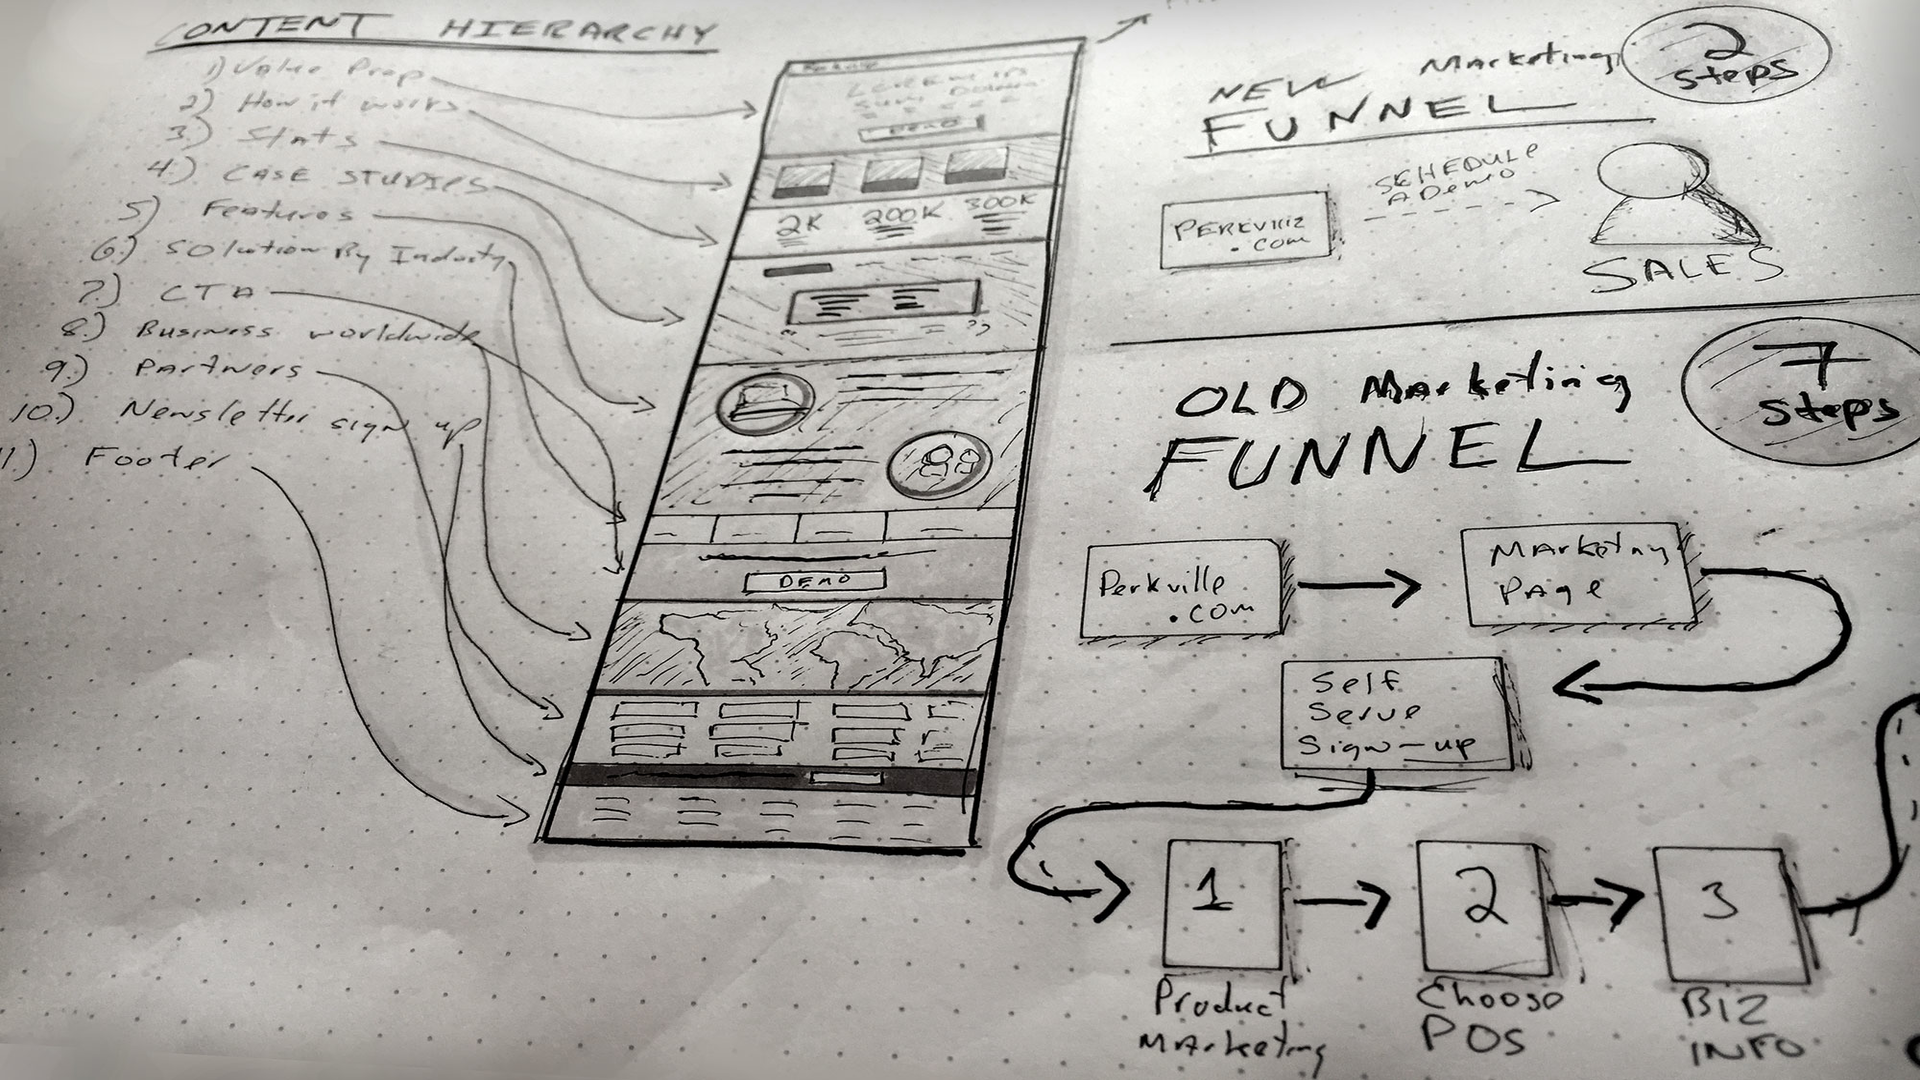 CONTENT HIERARCHY
1) Value Prop
2) How it works
3.) Stats
4.) CASE STUDIES
5) Features
6.) Solution By Industy
7.) CTA
8.) Business worldwide
9.) Partners
10.) Newsletter sign up
11) Footer
DEMO
2K 200K 300K
DEMO
NEW Marketing
FUNNEL
2
steps
PERKVILLE
.com
SCHEDULE
A Demo
SALES
OLD Marketing
FUNNEL
7
steps
Perkville
.com
Marketing
Page
Self
Serve
Sign-up
1
Product
Marketing
2
Choose
POS
3
BIZ
INFO